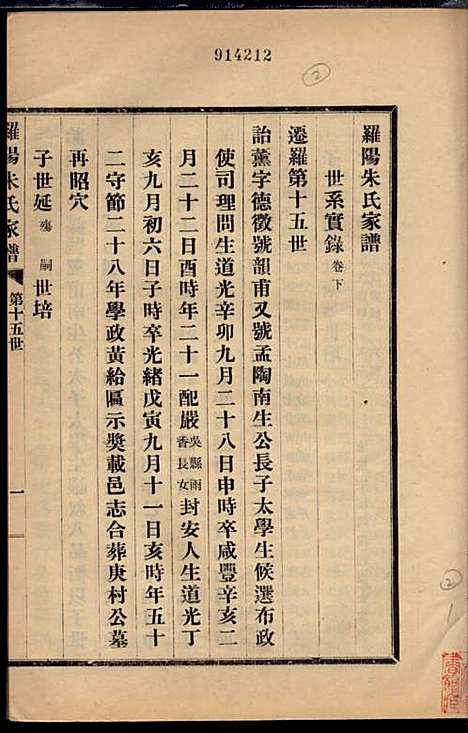 914212
2
羅陽朱氏家譜
世系實錄卷下
遷羅第十五世
詒薰字德徵號韻甫又號孟陶南生公長子太學生候選布政
使司理問生道光辛卯九月二十八日申時卒咸豐辛亥二
月二十二日酉時年二十一配嚴吳縣雨香長女封安人生道光丁
亥九月初六日子時卒光緒戊寅九月十一日亥時年五十
二守節二十八年學政黃給匾示獎載邑志合葬庚村公墓
再昭穴
子世延殤嗣世培
羅陽朱氏家譜
第十五世
一
2
1